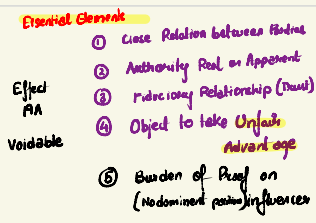 Essential Elements
① Close Relation between Parties
② Authority Real or Apparent
③ Fiduciary Relationship (Trust)
④ Object to take Unfair
Advantage
Effect
AA
Voidable
⑤ Burden of Proof on
(No dominent position) influencer